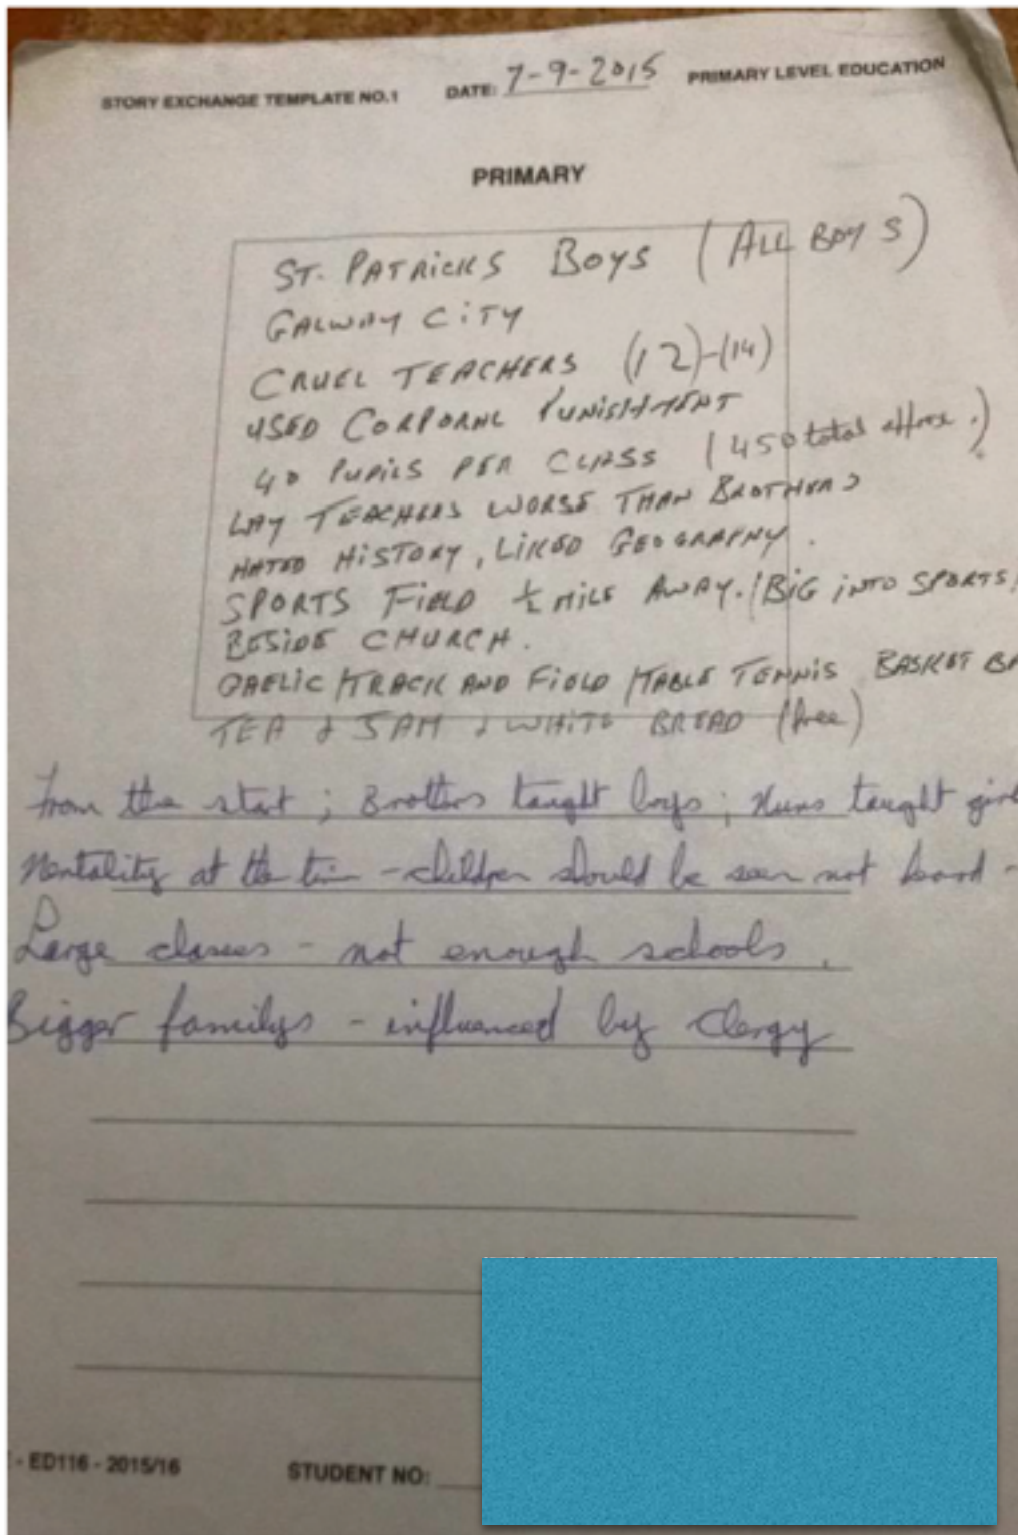 STORY EXCHANGE TEMPLATE NO.1 DATE: 7-9-2015 PRIMARY LEVEL EDUCATION
PRIMARY
ST. PATRICKS BOYS (ALL BOYS)
GALWAY CITY
CRUEL TEACHERS (12)-(14)
USED CORPORAL PUNISHMENT
40 PUPILS PER CLASS (450 total approx.)
LAY TEACHERS WORSE THAN BROTHERS
HATED HISTORY, LIKED GEOGRAPHY.
SPORTS FIELD ½ MILE AWAY. (BIG INTO SPORTS)
BESIDE CHURCH.
GAELIC/TRACK AND FIELD/TABLE TENNIS BASKET BA
TEA & JAM & WHITE BREAD (free)
From the start; Brothers taught boys; Nuns taught girl
Mentality at the time - children should be seen not heard -
Large classes - not enough schools.
Bigger familys - influenced by Clergy
- ED116 - 2015/16 STUDENT NO: